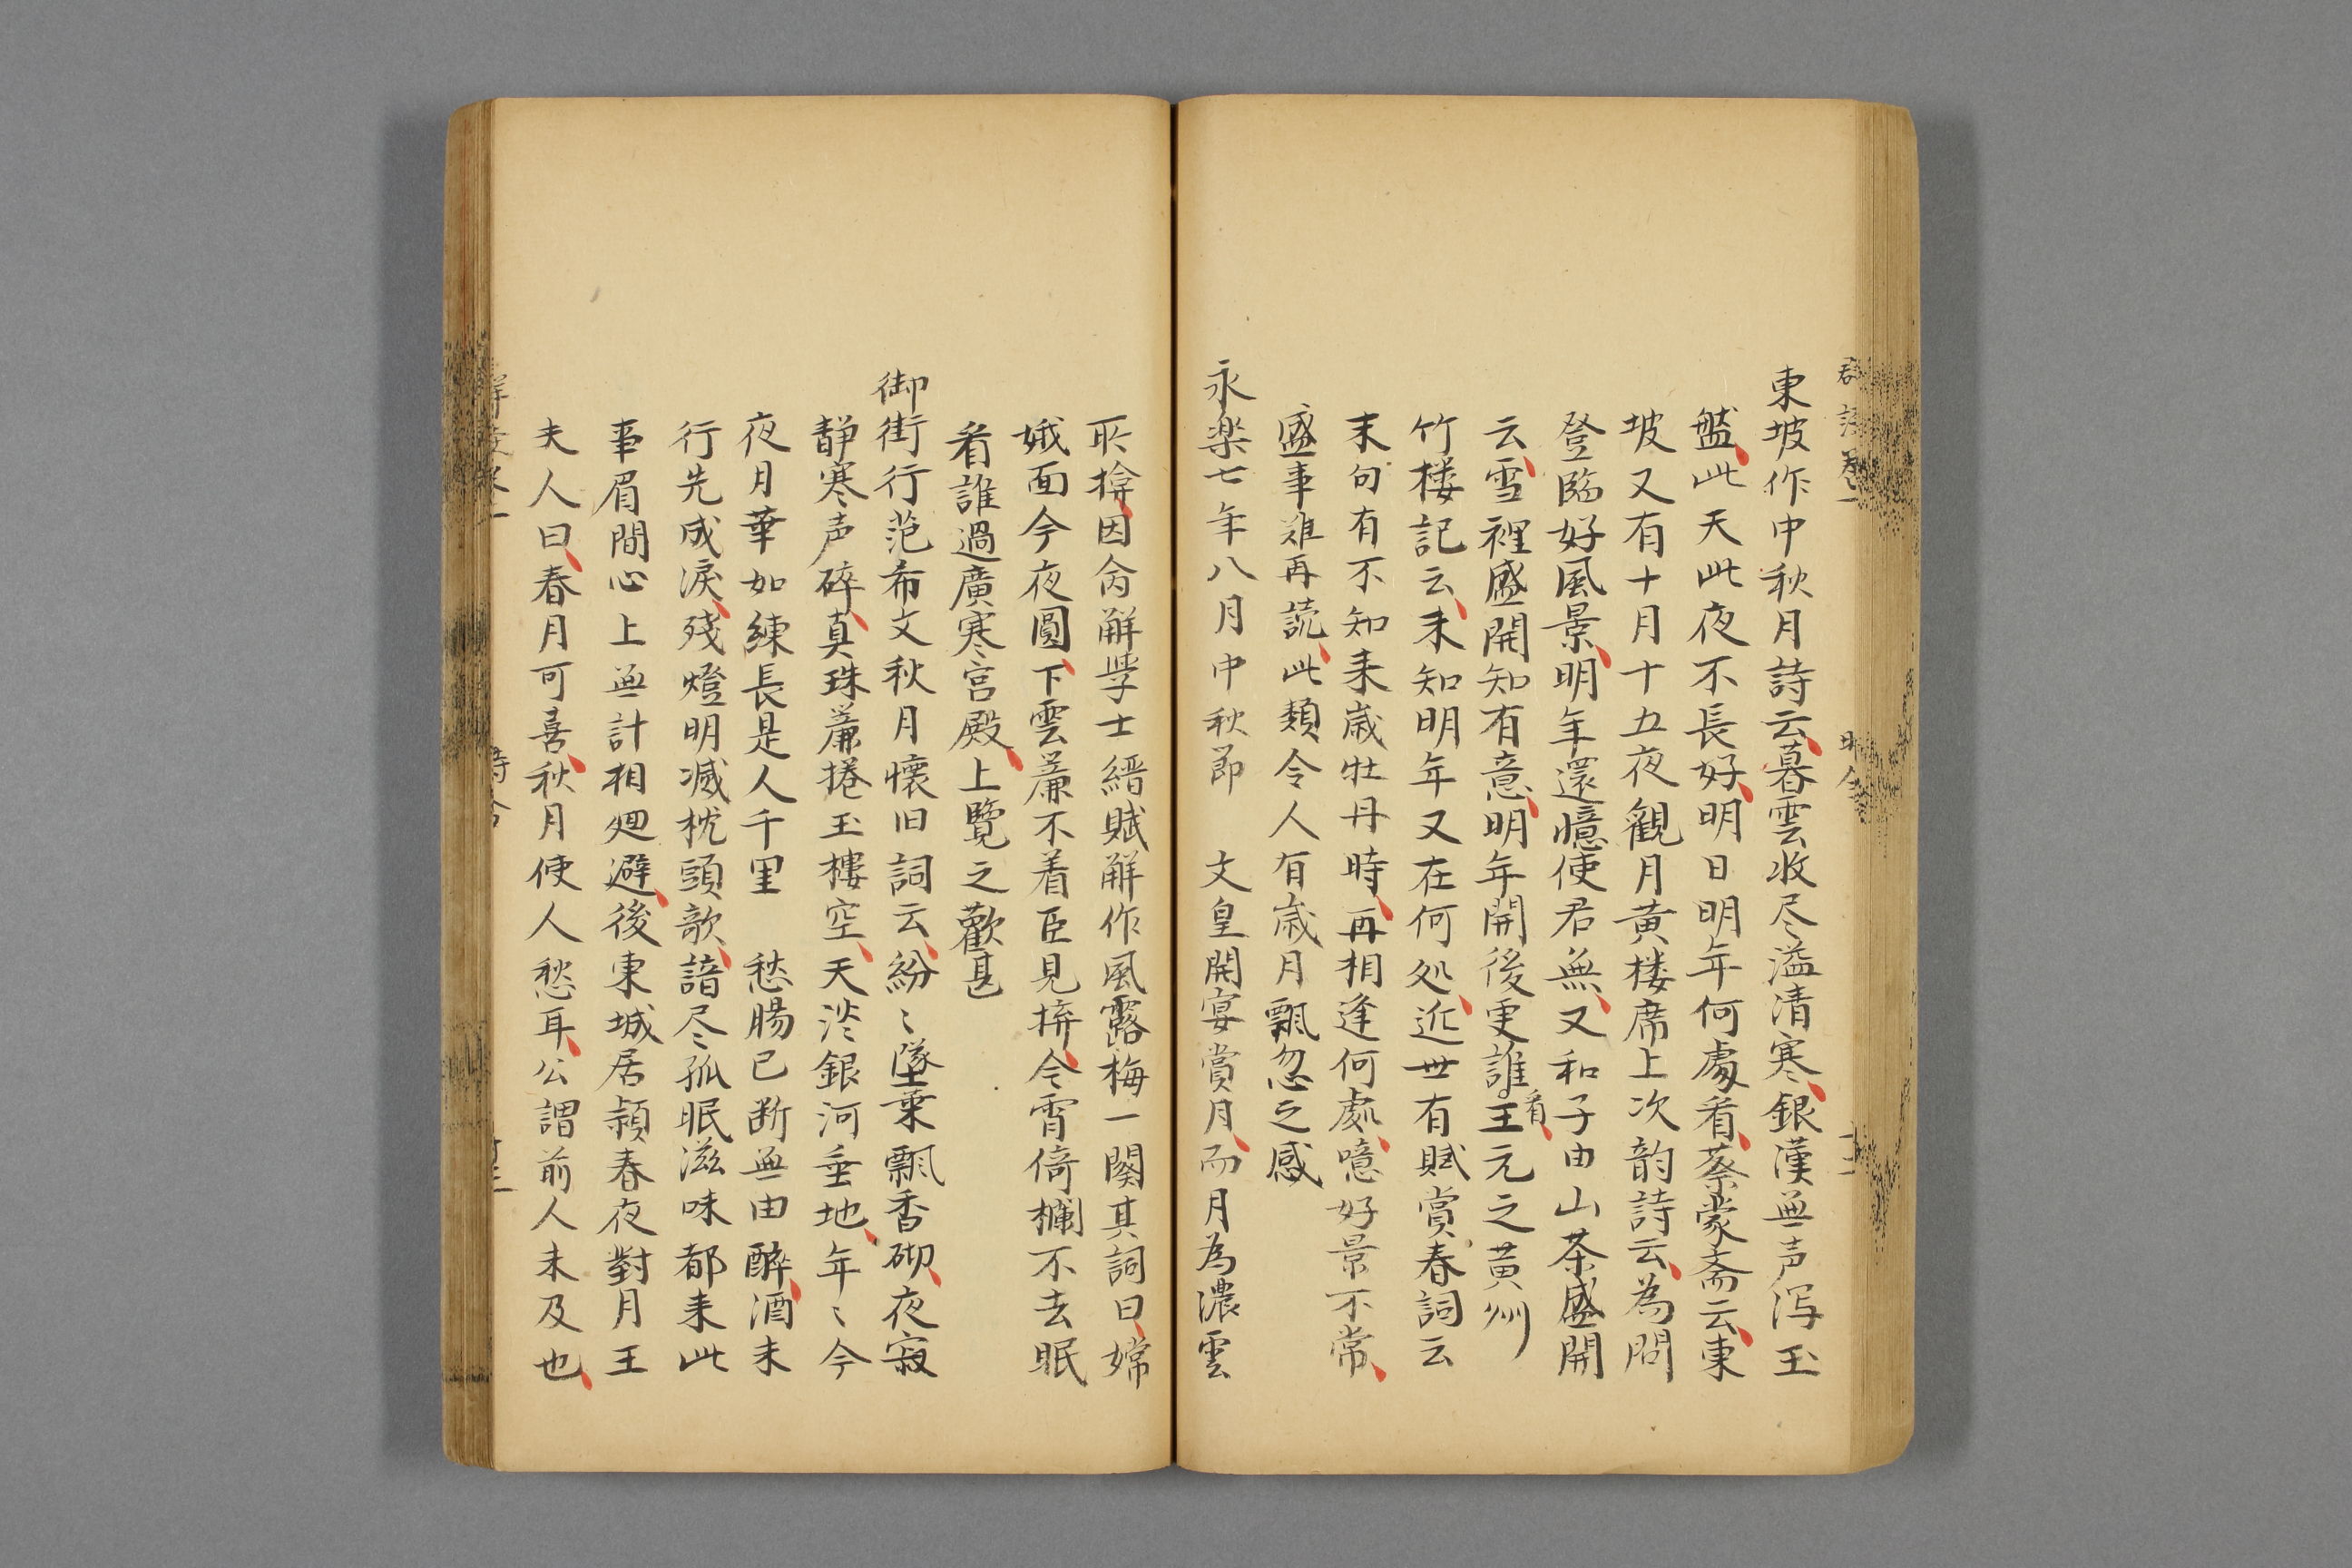 東坡作中秋月詩云暮雲收尽溢清寒銀漢無声泻玉
盤此天此夜不長好明日明年何處看蔡蒙斎云東
坡又有十月十五夜観月黄楼席上次韵詩云為問
登臨好風景明年還憶使君無又和子由山茶盛開
云雪裡盛開知有意明年開後更誰看王元之黄州
竹楼記云未知明年又在何処近世有賦賞春詞云
末句有不知来歳牡丹時再相逢何處噫好景不常
盛事难再読此類令人有歳月飄忽之感
永楽七年八月中秋節 文皇開宴賞月而月為濃雲
所揜因命解学士縉賦解作風露梅一闋其詞曰嫦
娥面今夜圓下雲簾不着臣見拚令宵倚欄不去眠
看誰過廣寒宮殿上覽之歡甚
御街行范希文秋月懐旧詞云紛〻墜葉飄香砌夜寂
静寒声碎真珠簾捲玉樓空天淡銀河垂地年〻今
夜月華如練長是人千里 愁腸已断無由醉酒未
行先成淚残燈明滅枕頭欹諳尽孤眠滋味都来此
事眉間心上無計相廻避後東城居頴春夜對月王
夫人曰春月可喜秋月使人愁耳公謂前人未及也